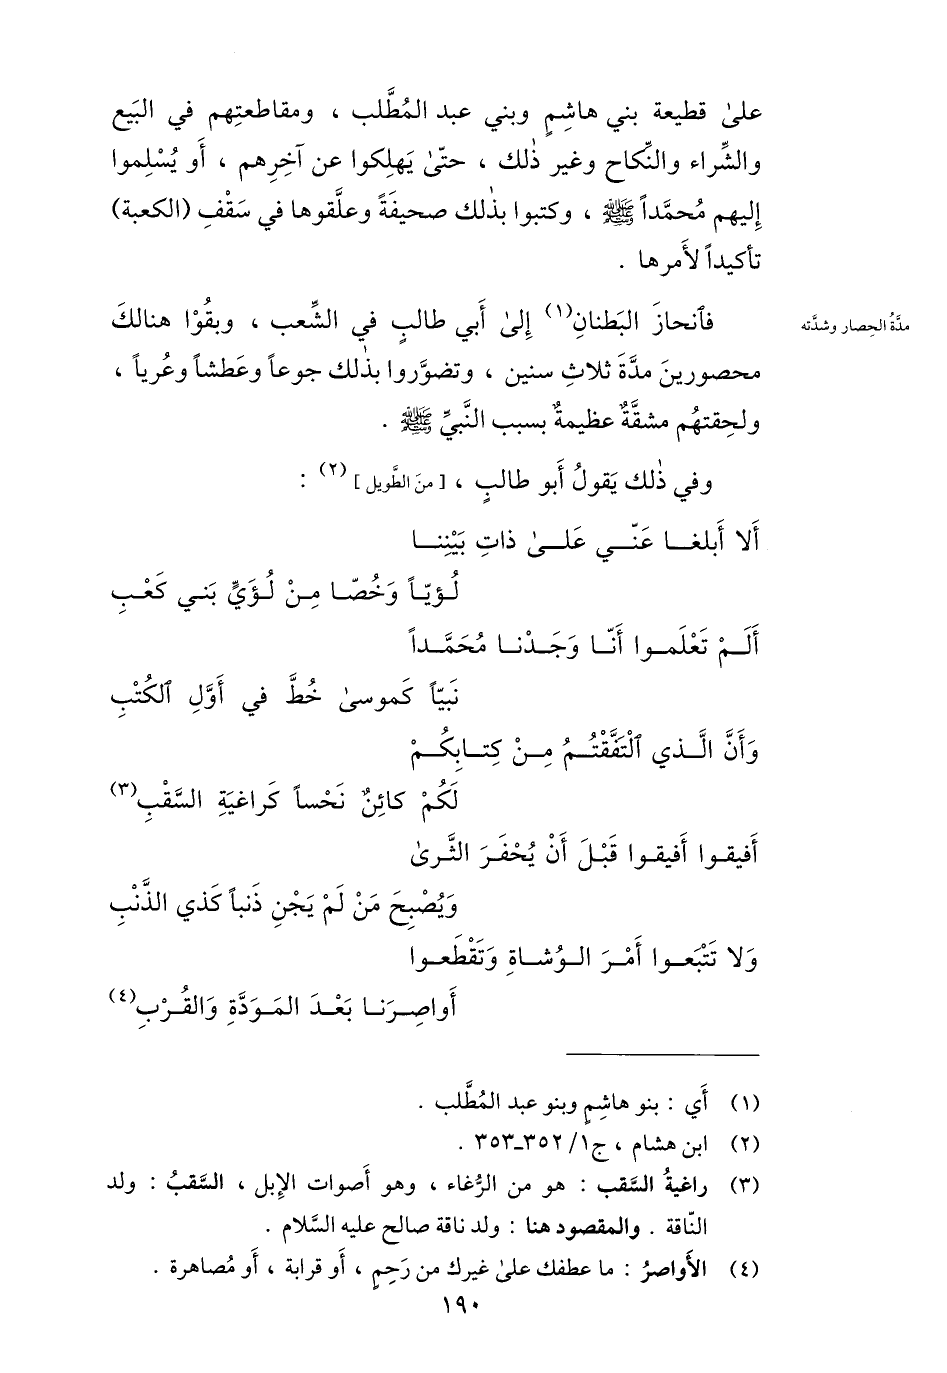 علىٰ قطيعة بني هاشِمٍ وبني عبد المُطَّلب ، ومقاطعتِهم في البَيع
والشِّراء والنِّكاح وغير ذٰلك ، حتّىٰ يَهلِكوا عن آخِرِهم ، أَو يُسْلِموا
إِليهم مُحمَّداً ﷺ ، وكتبوا بذٰلك صحيفَةً وعلَّقوها في سَقْفِ (الكعبة)
تأكيداً لأَمرها .
مدَّةُ الحِصار وشدَّته
فٱنحازَ البَطنانِ(١) إِلىٰ أَبي طالبٍ في الشِّعب ، وبقُوْا هنالكَ
محصورينَ مدَّةَ ثلاثِ سنين ، وتضوَّروا بذٰلك جوعاً وعَطشاً وعُرياً ،
ولحِقتهُم مشقَّةٌ عظيمةٌ بسبب النَّبيِّ ﷺ .
وفي ذٰلك يَقولُ أَبو طالبٍ ، [منَ الطَّويل](٢) :
أَلا أَبلغـا عَنّـي عَلـىٰ ذاتِ بَيْنِنـا
لُـؤيّـاً وَخُصّـا مِـنْ لُـؤَيٍّ بَنـي كَعْـبِ
أَلَـمْ تَعْلَمـوا أَنّـا وَجَـدْنـا مُحَمَّـداً
نَبيّاً كَموسىٰ خُطَّ في أَوَّلِ ٱلكُتْبِ
وَأَنَّ الَّـذي ٱلْتَفَّقْتُـمُ مِـنْ كِتـابِكُـمْ
لَكُمْ كائِنٌ نَحْساً كَراغيَةِ السَّقْبِ(٣)
أَفيقـوا أَفيقـوا قَبْـلَ أَنْ يُحْفَـرَ الثَّرىٰ
وَيُصْبِحَ مَنْ لَمْ يَجْنِ ذَنباً كَذي الذَّنْبِ
وَلا تَتْبَعـوا أَمْـرَ الـوُشـاةِ وَتَقْطَعـوا
أَواصِـرَنـا بَعْـدَ المَـوَدَّةِ وَالقُـرْبِ(٤)
(١) أَي : بنو هاشِمٍ وبنو عبد المُطَّلب .
(٢) ابن هشام ، ج١/ ٣٥٢-٣٥٣ .
(٣) راغيةُ السَّقب : هو من الرُّغاء ، وهو أَصوات الإِبل ، السَّقبُ : ولد
النّاقة . والمقصود هنا : ولد ناقة صالح عليه السَّلام .
(٤) الأَواصرُ : ما عطفك علىٰ غيرك من رَحِمٍ ، أَو قرابة ، أَو مُصاهرة .
١٩٠